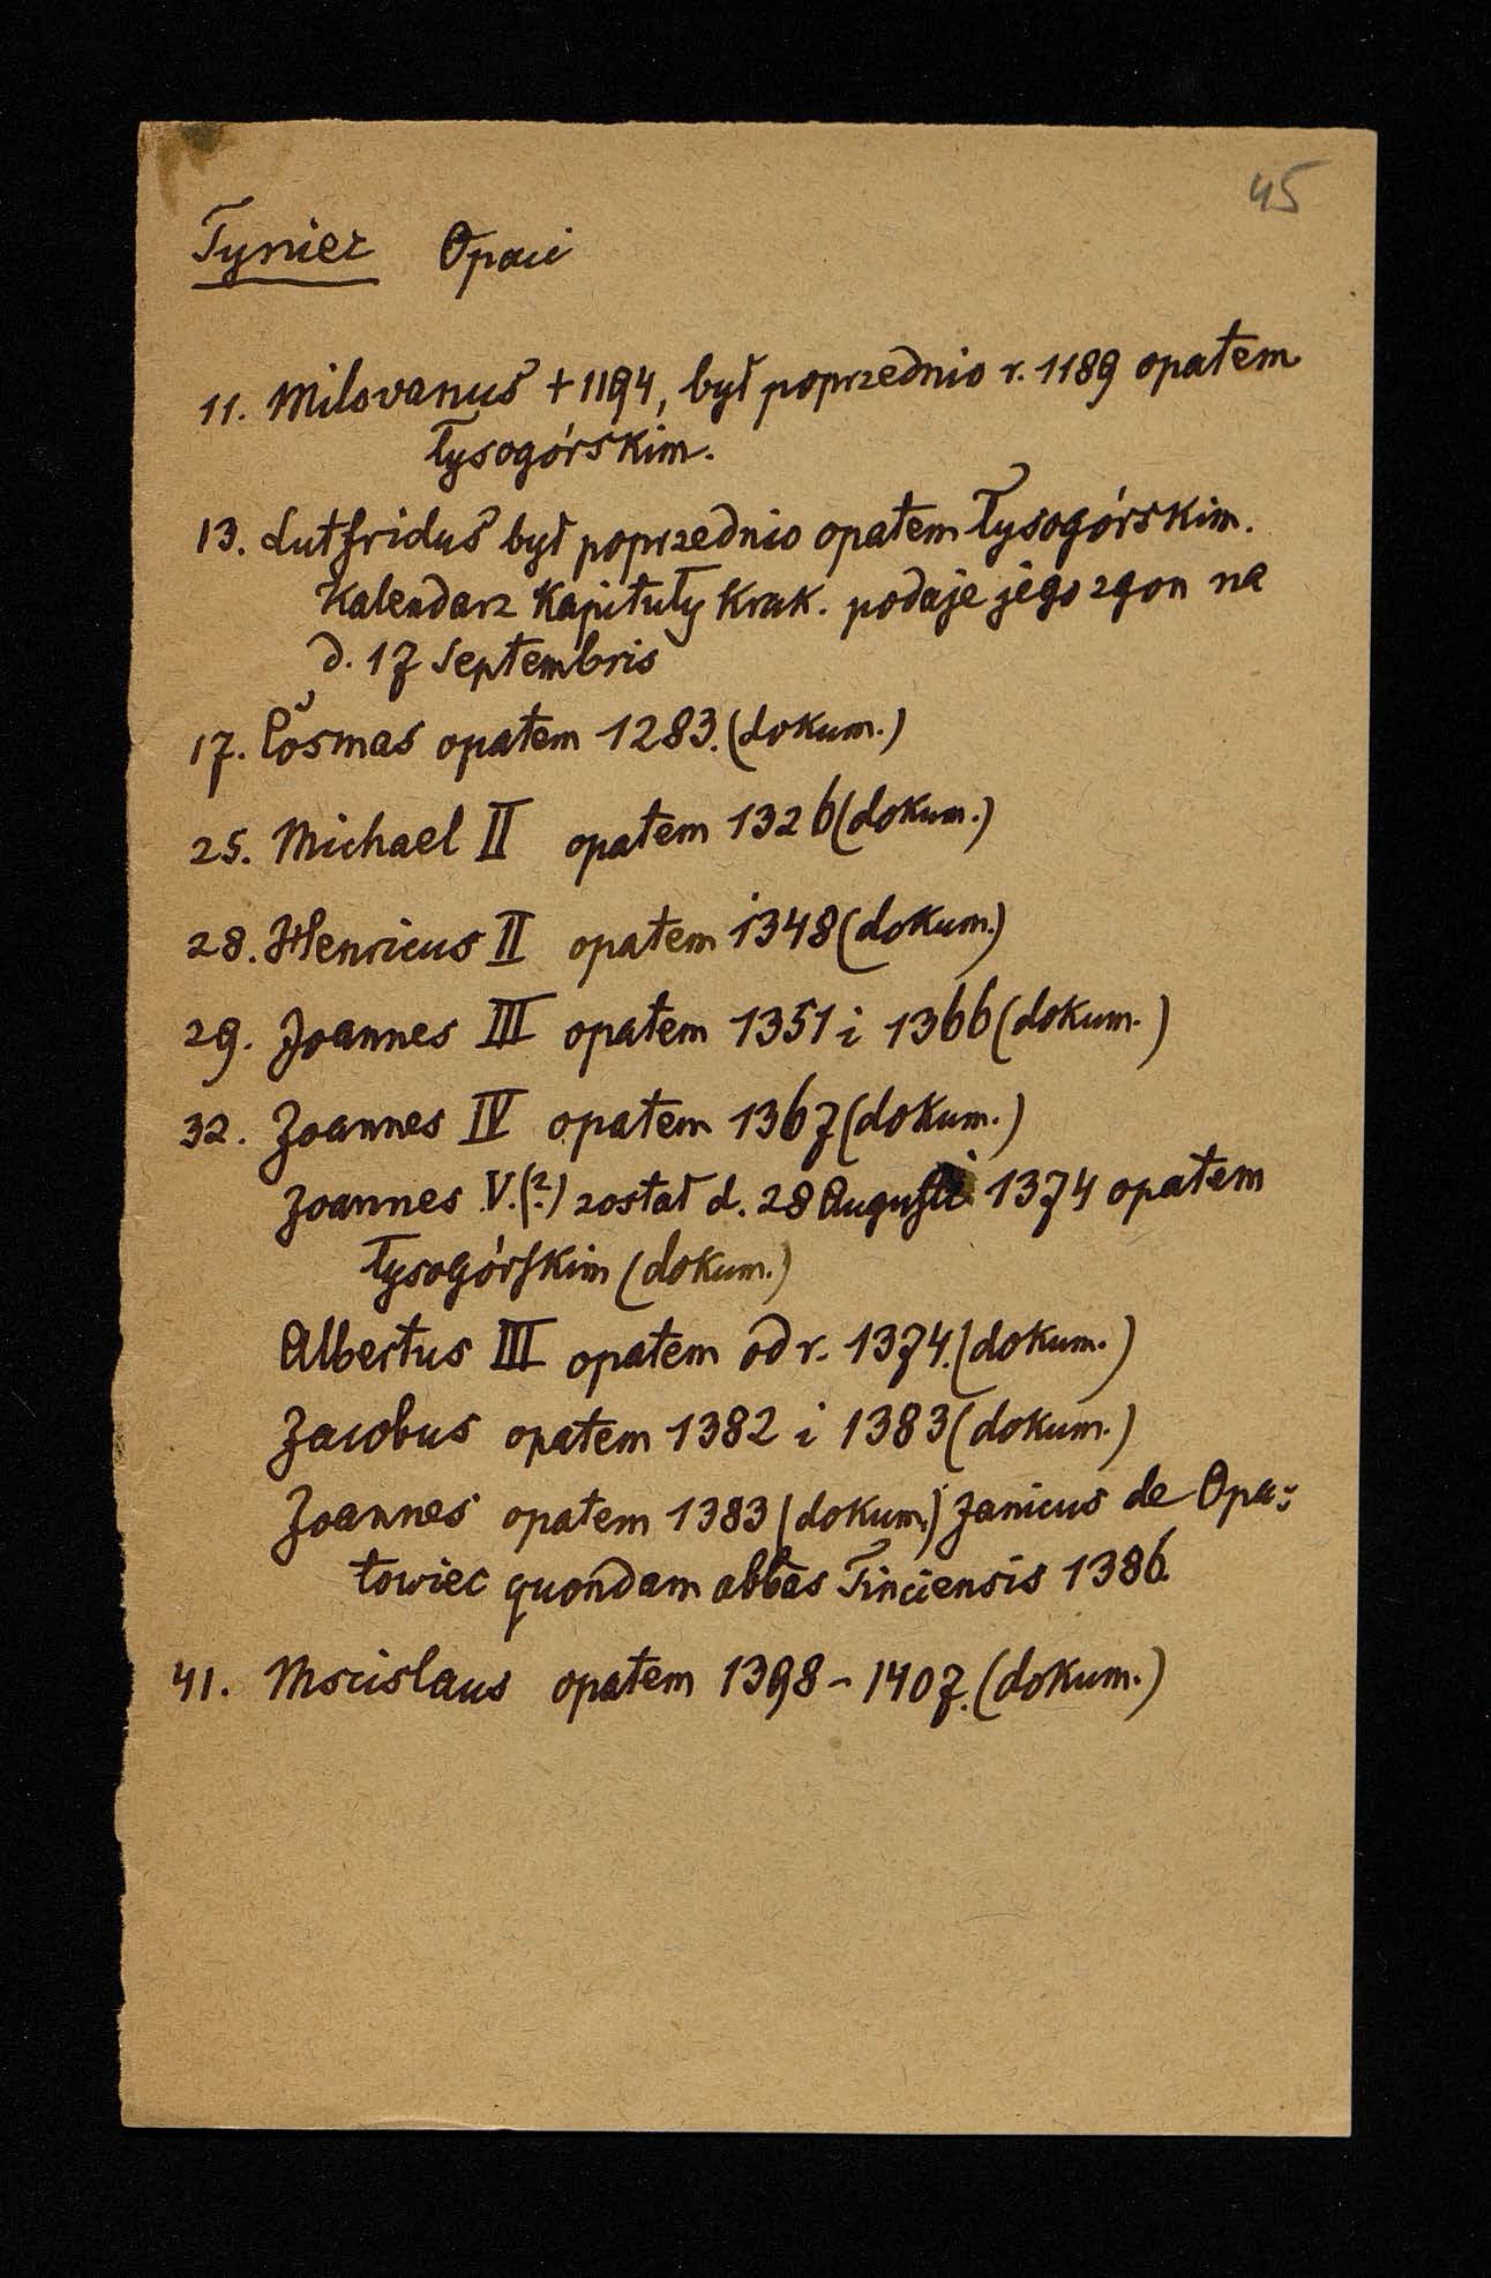 45
Tyniec Opaci
11. Milovanus + 1194, był poprzednio r. 1189 opatem
łysogórskim.
13. Lutfridus był poprzednio opatem łysogórskim.
Kalendarz Kapituły Krak. podaje jego zgon na
d. 17 Septembris
17. Cosmas opatem 1283. (dokum.)
25. Michael II opatem 1326 (dokum.)
28. Henricus II opatem 1348 (dokum.)
29. Joannes III opatem 1351 i 1366 (dokum.)
32. Joannes IV opatem 1367 (dokum.)
Joannes V. (?) został d. 28 Augusti 1374 opatem
łysogórskim (dokum.)
Albertus III opatem od r. 1374. (dokum.)
Jacobus opatem 1382 i 1383 (dokum.)
Joannes opatem 1383 (dokum.) Janicus de Opa-
towiec quondam abbas Tinciensis 1386.
41. Mscislaus opatem 1398 - 1407. (dokum.)